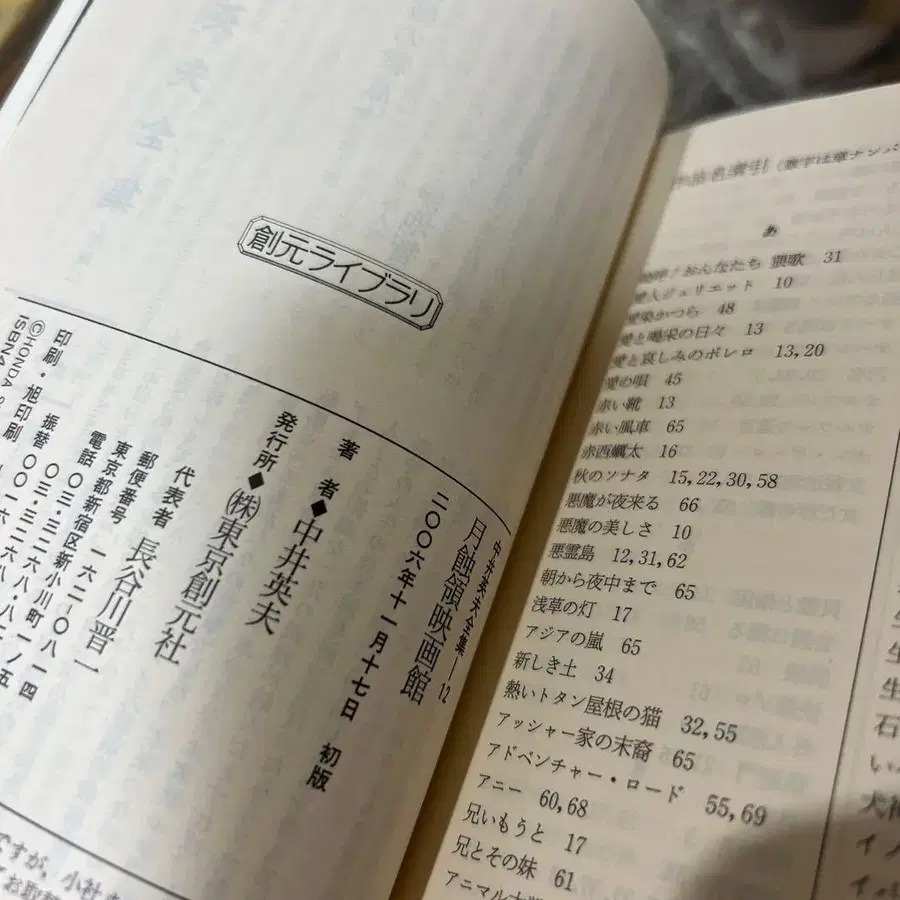 創元ライブラリ
中井英夫全集―12
月蝕領映画館
二〇〇六年十一月十七日 初版
著 者◆中井英夫
発行所◆㈱東京創元社
代表者 長谷川晋一
郵便番号 一六二―〇八一四
東京都新宿区新小川町一ノ五
電話 〇三・三二六八・八二
振替 〇〇一六
印刷・旭印刷
©HONDA
ISBN4
ですが、小社
てお取
作品名索引(数字は章ナンバ
あ
おんなたち 猥歌 31
愛人ジュリエット 10
愛染かつら 48
愛と喝采の日々 13
愛と哀しみのボレロ 13,20
愛の唄 45
赤い靴 13
赤い風車 65
赤西蠣太 16
秋のソナタ 15,22,30,58
悪魔が夜来る 66
悪魔の美しさ 10
悪霊島 12,31,62
朝から夜中まで 65
浅草の灯 17
アジアの嵐 65
新しき土 34
熱いトタン屋根の猫 32,55
アッシャー家の末裔 65
アドベンチャー・ロード 55,69
アニー 60,68
兄いもうと 17
兄とその妹 61
アニマル大
生
生
石
い
犬神
イ